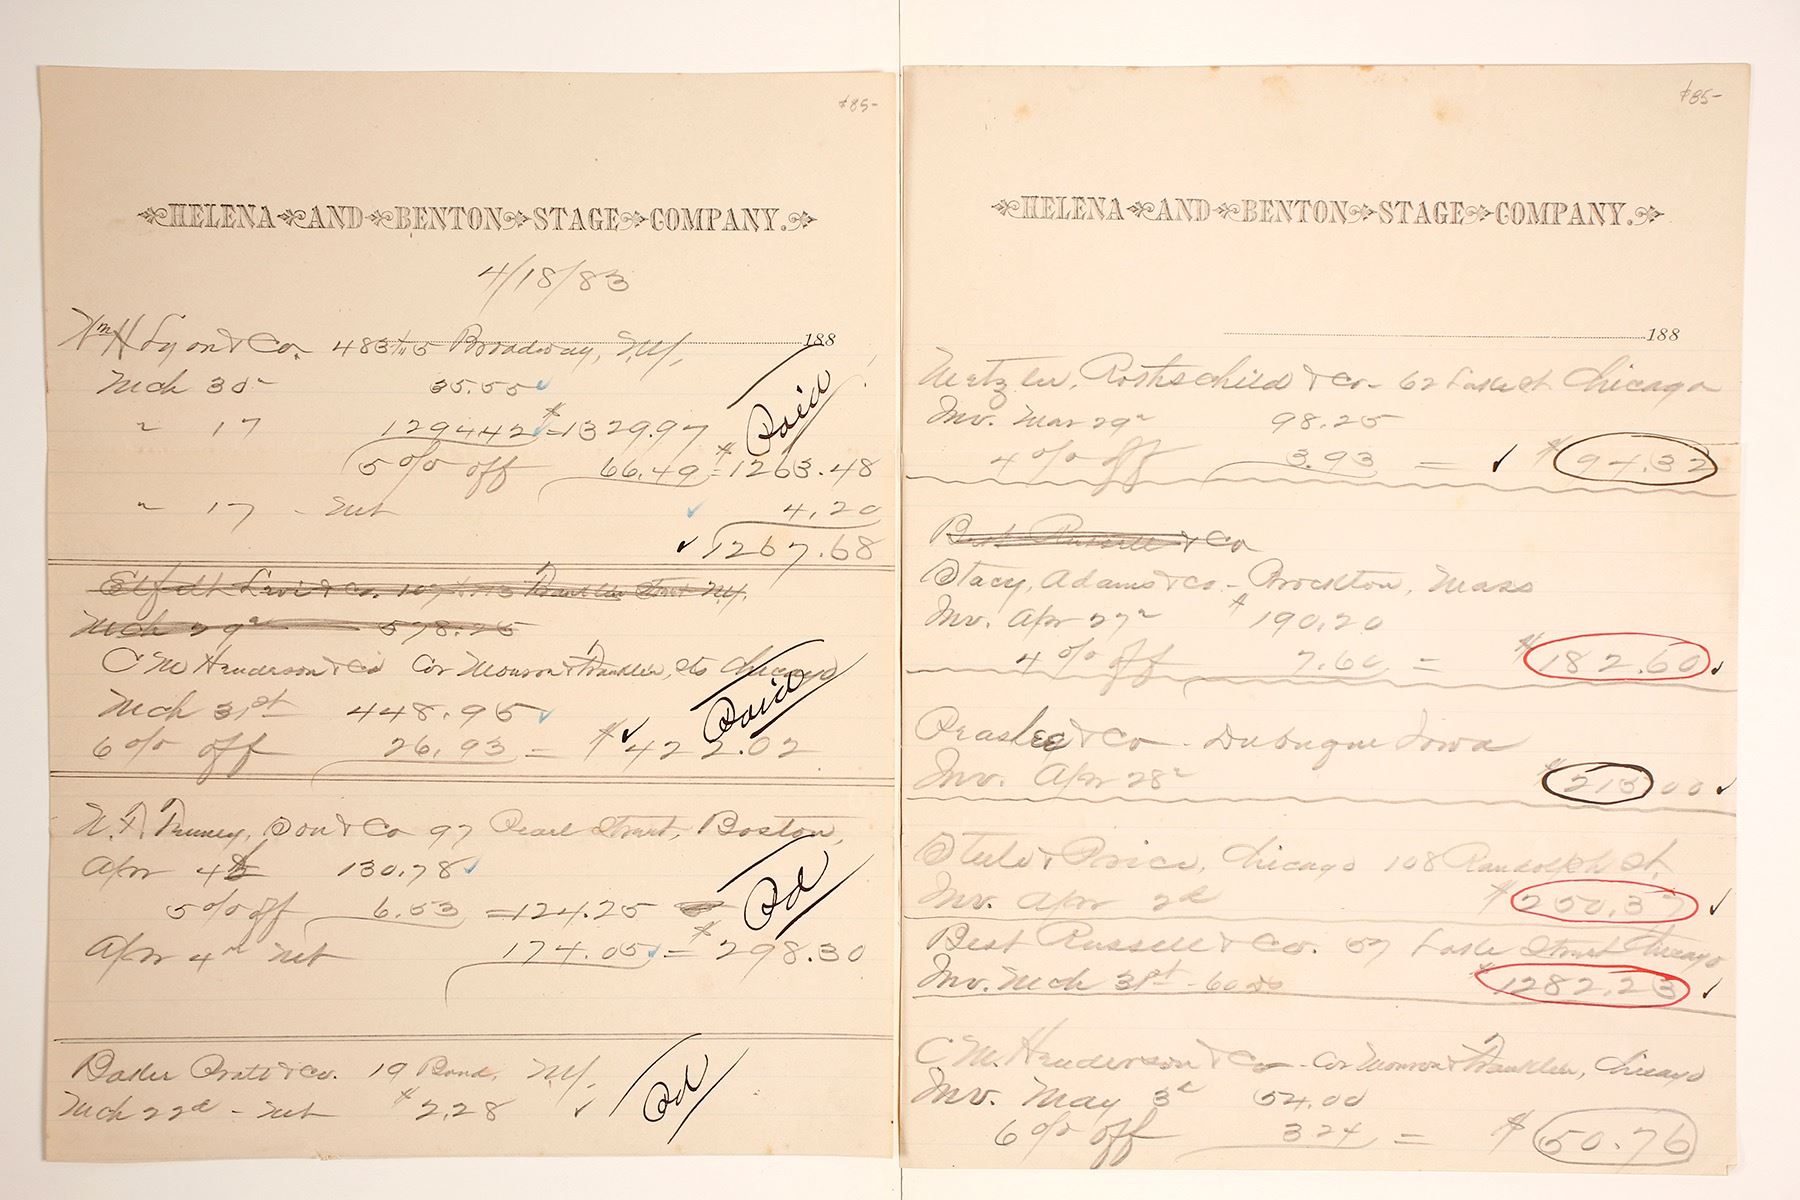 $85-
HELENA AND BENTON STAGE COMPANY.
4/18/83
188
Wm H Lyon & Co. 483 Broadway, N.Y.
Mch 30" 35.55
" 17 1294.42 = $1329.97
5 % off 66.49 = $1263.48
" 17 - Net 4.20
1267.68
Paid
Elfelt Levi & Co. 107 Franklin Street N.Y.
Mch 29" 578.25
C M Henderson & Co Cor Monroe & Franklin, Sts Chicago
Mch 31st 448.95
6 % off 26.93 = $422.02
Paid
Son & Co 97 Pearl Street, Boston,
Apr 4 130.78
5 % off 6.53 = 124.25
Apr 4" Net 174.05 = $298.30
Pd
Baker Pratt & Co. 19 Bond, N.Y.
Mch 22d - Net $2.28
Pd
$85-
HELENA AND BENTON STAGE COMPANY.
188
Metzler, Rothschild & Co - 62 Lake St. Chicago
Inv. Mar 29" 98.25
4 % off 3.93 = $94.32
Best Russell & Co
Stacy, Adams & Co - Brockton, Mass
Inv. Apr 27" $190.20
4 % off 7.60 = $182.60
Peaslee & Co - Dubuque Iowa
Inv. Apr 28" $213.00
Steele & Price, Chicago 108 Randolph St.
Inv. Apr 2d $250.37
Best Russell & Co. 57 Lake Street Chicago
Inv. Mch 31st - 60 ds $1282.23
C. M. Henderson & Co - Cor Monroe & Franklin, Chicago
Inv. May 3d 54.00
6 % off 3.24 = $50.76